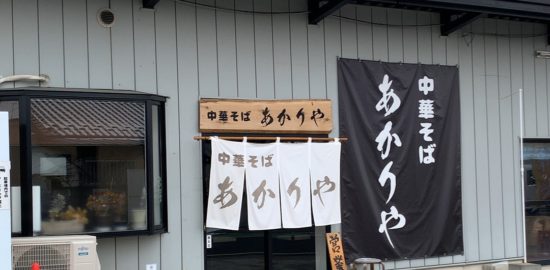 中華そば あかりや
中華そば
あかりや
中華そば
あかりや
営業